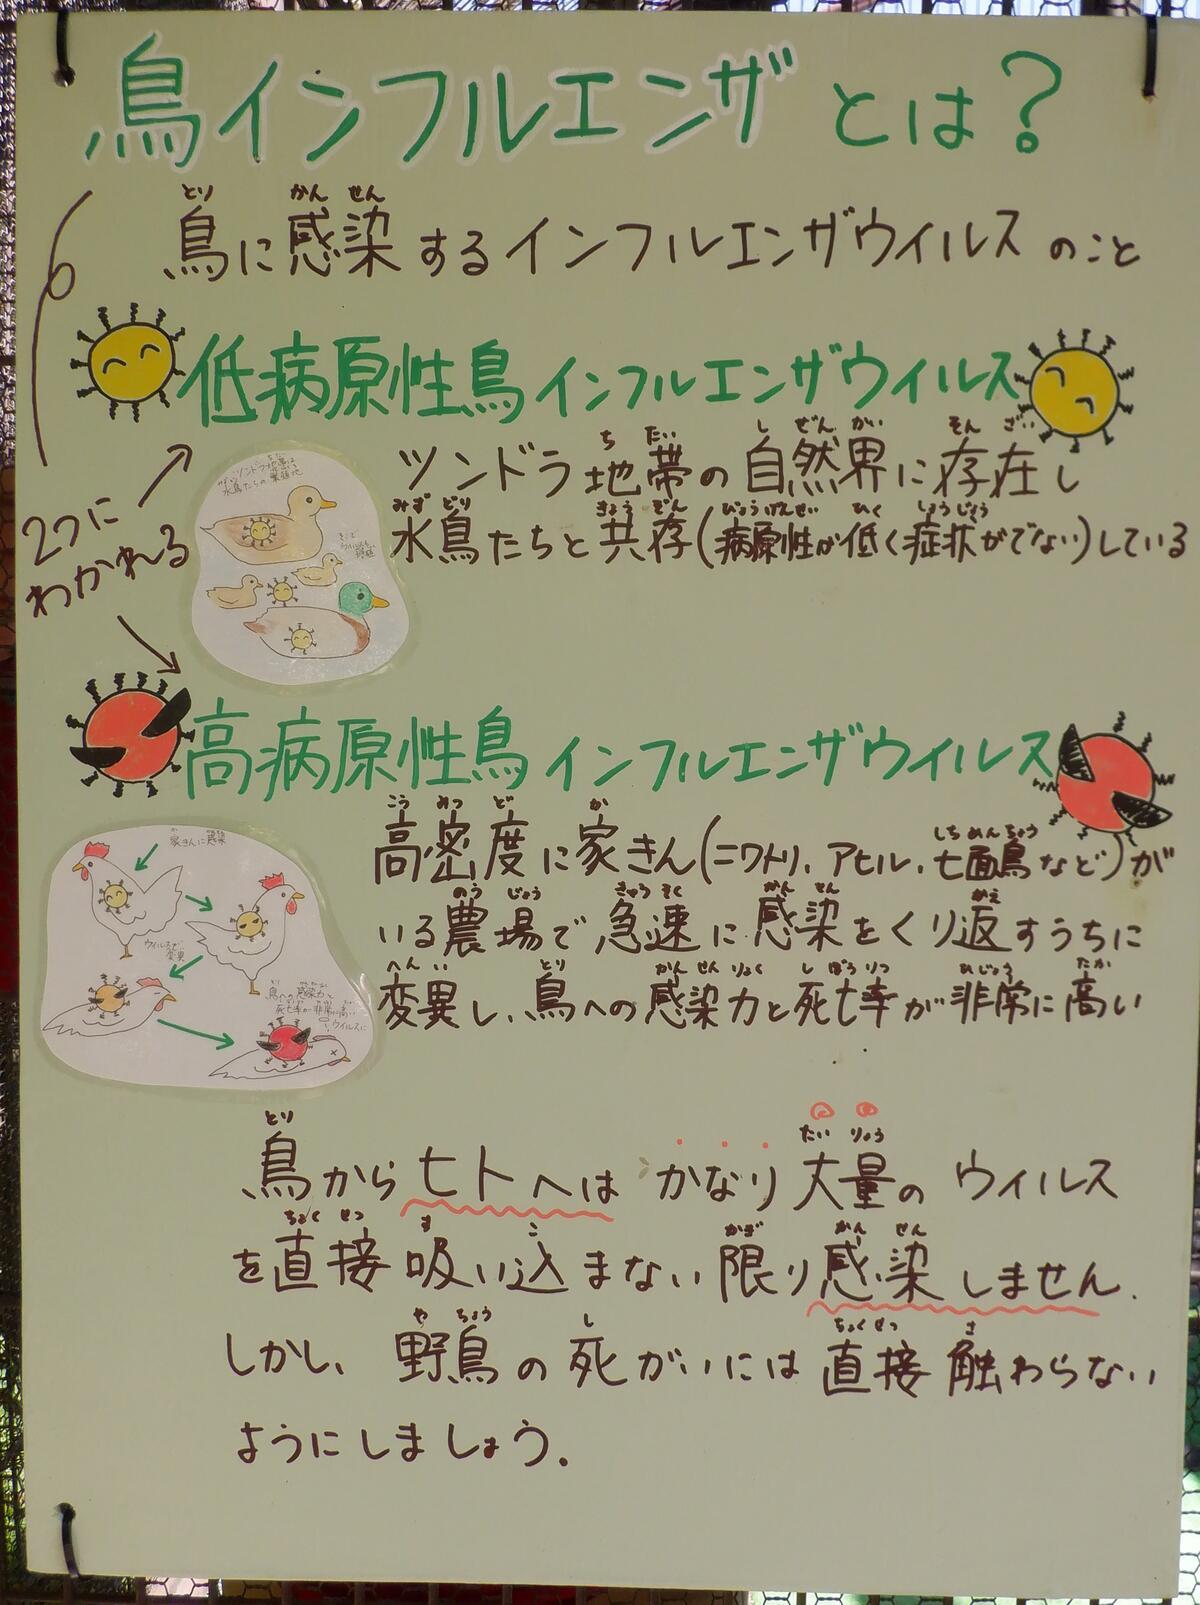 鳥インフルエンザとは?
鳥に感染するインフルエンザウイルスのこと
低病原性鳥インフルエンザウイルス
ツンドラ地帯の自然界に存在し
水鳥たちと共存(病原性が低く症状がでない)している
2つに
わかれる
ツンドラ地帯は
水鳥たちの繁殖地
高病原性鳥インフルエンザウイルス
高密度に家きん(ニワトリ、アヒル、七面鳥など)が
いる農場で急速に感染をくり返すうちに
変異し、鳥への感染力と死亡率が非常に高い
家きんに感染
ウイルスが
変異
鳥への感染力と
死亡率が非常に高い
ウイルスに
鳥からヒトへは かなり大量の ウィルス
を直接吸い込まない限り感染しません.
しかし、野鳥の死がいには直接触わらない
ようにしましょう.